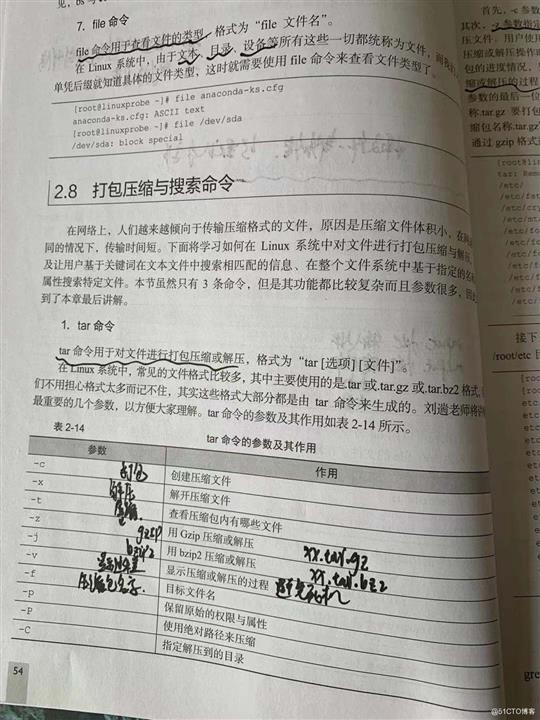 见，
7. file 命令
file 命令用于查看文件的类型，格式为“file 文件名”。
在 Linux 系统中，由于文本、目录、设备等所有这些一切都统称为文件，而我们
单凭后缀就知道具体的文件类型，这时就需要使用 file 命令来查看文件类型了。
[root@linuxprobe ~]# file anaconda-ks.cfg
anaconda-ks.cfg: ASCII text
[root@linuxprobe ~]# file /dev/sda
/dev/sda: block special
2.8 打包压缩与搜索命令
在网络上，人们越来越倾向于传输压缩格式的文件，原因是压缩文件体积小，在网
同的情况下，传输时间短。下面将学习如何在 Linux 系统中对文件进行打包压缩与解压
及让用户基于关键词在文本文件中搜索相匹配的信息、在整个文件系统中基于指定的名
属性搜索特定文件。本节虽然只有 3 条命令，但是其功能都比较复杂而且参数很多，因此
到了本章最后讲解。
1. tar 命令
tar 命令用于对文件进行打包压缩或解压，格式为“tar [选项] [文件]”。
在 Linux 系统中，常见的文件格式比较多，其中主要使用的是.tar 或.tar.gz 或.tar.bz2 格式，
们不用担心格式太多而记不住，其实这些格式大部分都是由 tar 命令来生成的。刘遄老师将
最重要的几个参数，以方便大家理解。tar 命令的参数及其作用如表 2-14 所示。
表 2-14 tar 命令的参数及其作用
参数 作用
-c 打包 创建压缩文件
-x 解压 解开压缩文件
-t 查看压缩包内有哪些文件
-z gzip 用 Gzip 压缩或解压 xx.tar.gz
-j bzip2 用 bzip2 压缩或解压 xx.tar.bz2
-v 显示压缩或解压的过程
-f 目标文件名
-p 保留原始的权限与属性
-P 使用绝对路径来压缩
-C 指定解压到的目录
54
首先，-c 参数
其次，-z 参数指定
压文件。用户使用
压缩或解压操作
包的进度情况，
缩或解压的过程
参数的最后一位
称.tar.gz 要打包
缩包名称.tar.gz
通过 gzip 格式
[root@li
tar: Remo
/etc/
/etc/fst
/etc/cry
/etc/mta
/etc/fo
/etc/fo
接下
/root/etc
[roo
[roo
etc
etc
etc
gre
@51CTO博客